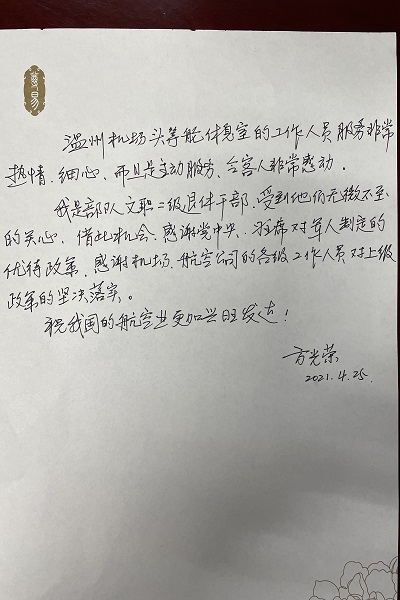 尊易
温州机场头等舱休息室的工作人员服务非常
热情、细心、而且是主动服务、令客人非常感动。
我是部队文职二级退休干部、受到他们无微不至
的关心、借此机会、感谢党中央、习主席对军人制定的
优待政策、感谢机场、航空公司的各级工作人员对上级
政策的坚决落实。
祝我国的航空业更加兴旺发达!
方光荣
2021.4.25.